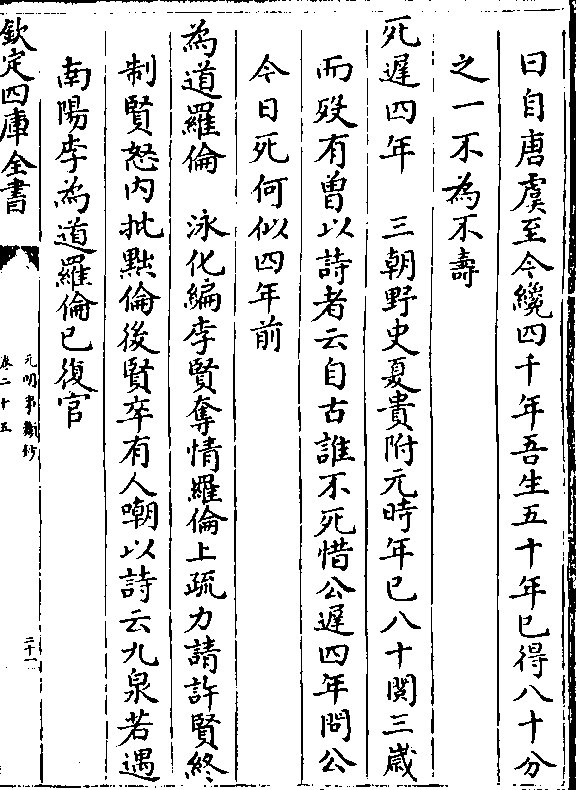 曰自唐虞至今纔四千年吾生五十年已得八十分
之一不為不壽
死遲四年　三朝野史夏貴附元時年已八十閱三歲
而歿有曾以詩者云自古誰不死惜公遲四年問公
今日死何似四年前
為道羅倫　泳化編李賢奪情羅倫上疏力請許賢終
制賢怒内批點倫後賢卒有人嘲以詩云九泉若遇
南陽李為道羅倫已復官
欽定四庫全書
元明事類鈔
卷二十五
二十一